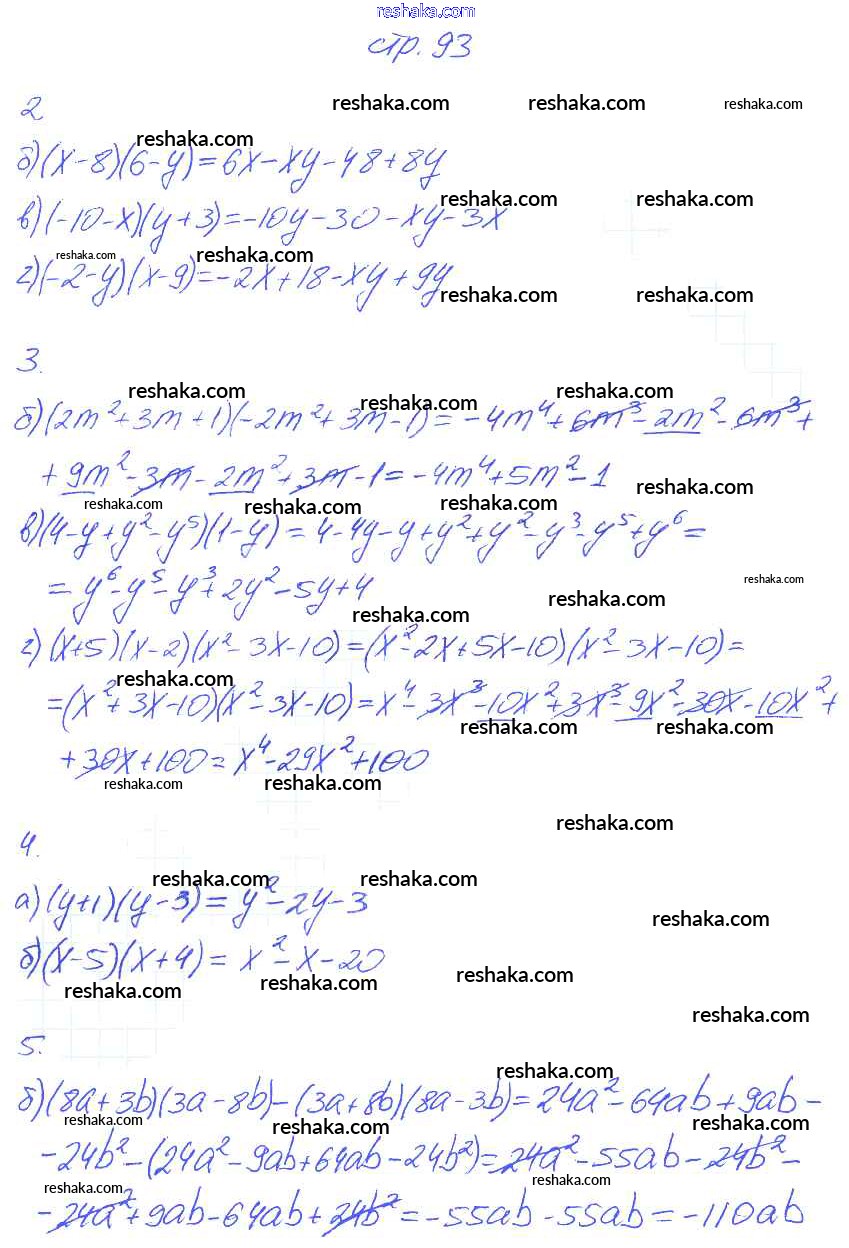 reshaka.com
стр. 93
2
reshaka.com reshaka.com reshaka.com
reshaka.com
б) (x-8)(6-y)=6x-xy-48+8y
reshaka.com reshaka.com
в) (-10-x)(y+3)=-10y-30-xy-3x
reshaka.com reshaka.com
г) (-2-y)(x-9)=-2x+18-xy+9y
reshaka.com reshaka.com
3.
reshaka.com reshaka.com reshaka.com
б) (2m²+3m+1)(-2m²+3m-1)=-4m⁴+6m³-2m²-6m³+
+9m²-3m-2m²+3m-1=-4m⁴+5m²-1
reshaka.com reshaka.com reshaka.com reshaka.com
в) (4-y+y²-y⁵)(1-y)=4-4y-y+y²+y²-y³-y⁵+y⁶=
=y⁶-y⁵-y³+2y²-5y+4
reshaka.com reshaka.com reshaka.com
г) (x+5)(x-2)(x²-3x-10)=(x²-2x+5x-10)(x²-3x-10)=
reshaka.com
=(x²+3x-10)(x²-3x-10)=x⁴-3x³-10x²+3x³-9x²-30x-10x²+
reshaka.com reshaka.com
+30x+100=x⁴-29x²+100
reshaka.com reshaka.com
reshaka.com
4.
reshaka.com reshaka.com
а) (y+1)(y-3)=y²-2y-3
reshaka.com
б) (x-5)(x+4)=x²-x-20
reshaka.com reshaka.com reshaka.com
reshaka.com
5.
reshaka.com
б) (8a+3b)(3a-8b)-(3a+8b)(8a-3b)=24a²-64ab+9ab-
reshaka.com reshaka.com reshaka.com
-24b²-(24a²-9ab+64ab-24b²)=24a²-55ab-24b²-
reshaka.com reshaka.com
-24a²+9ab-64ab+24b²=-55ab-55ab=-110ab